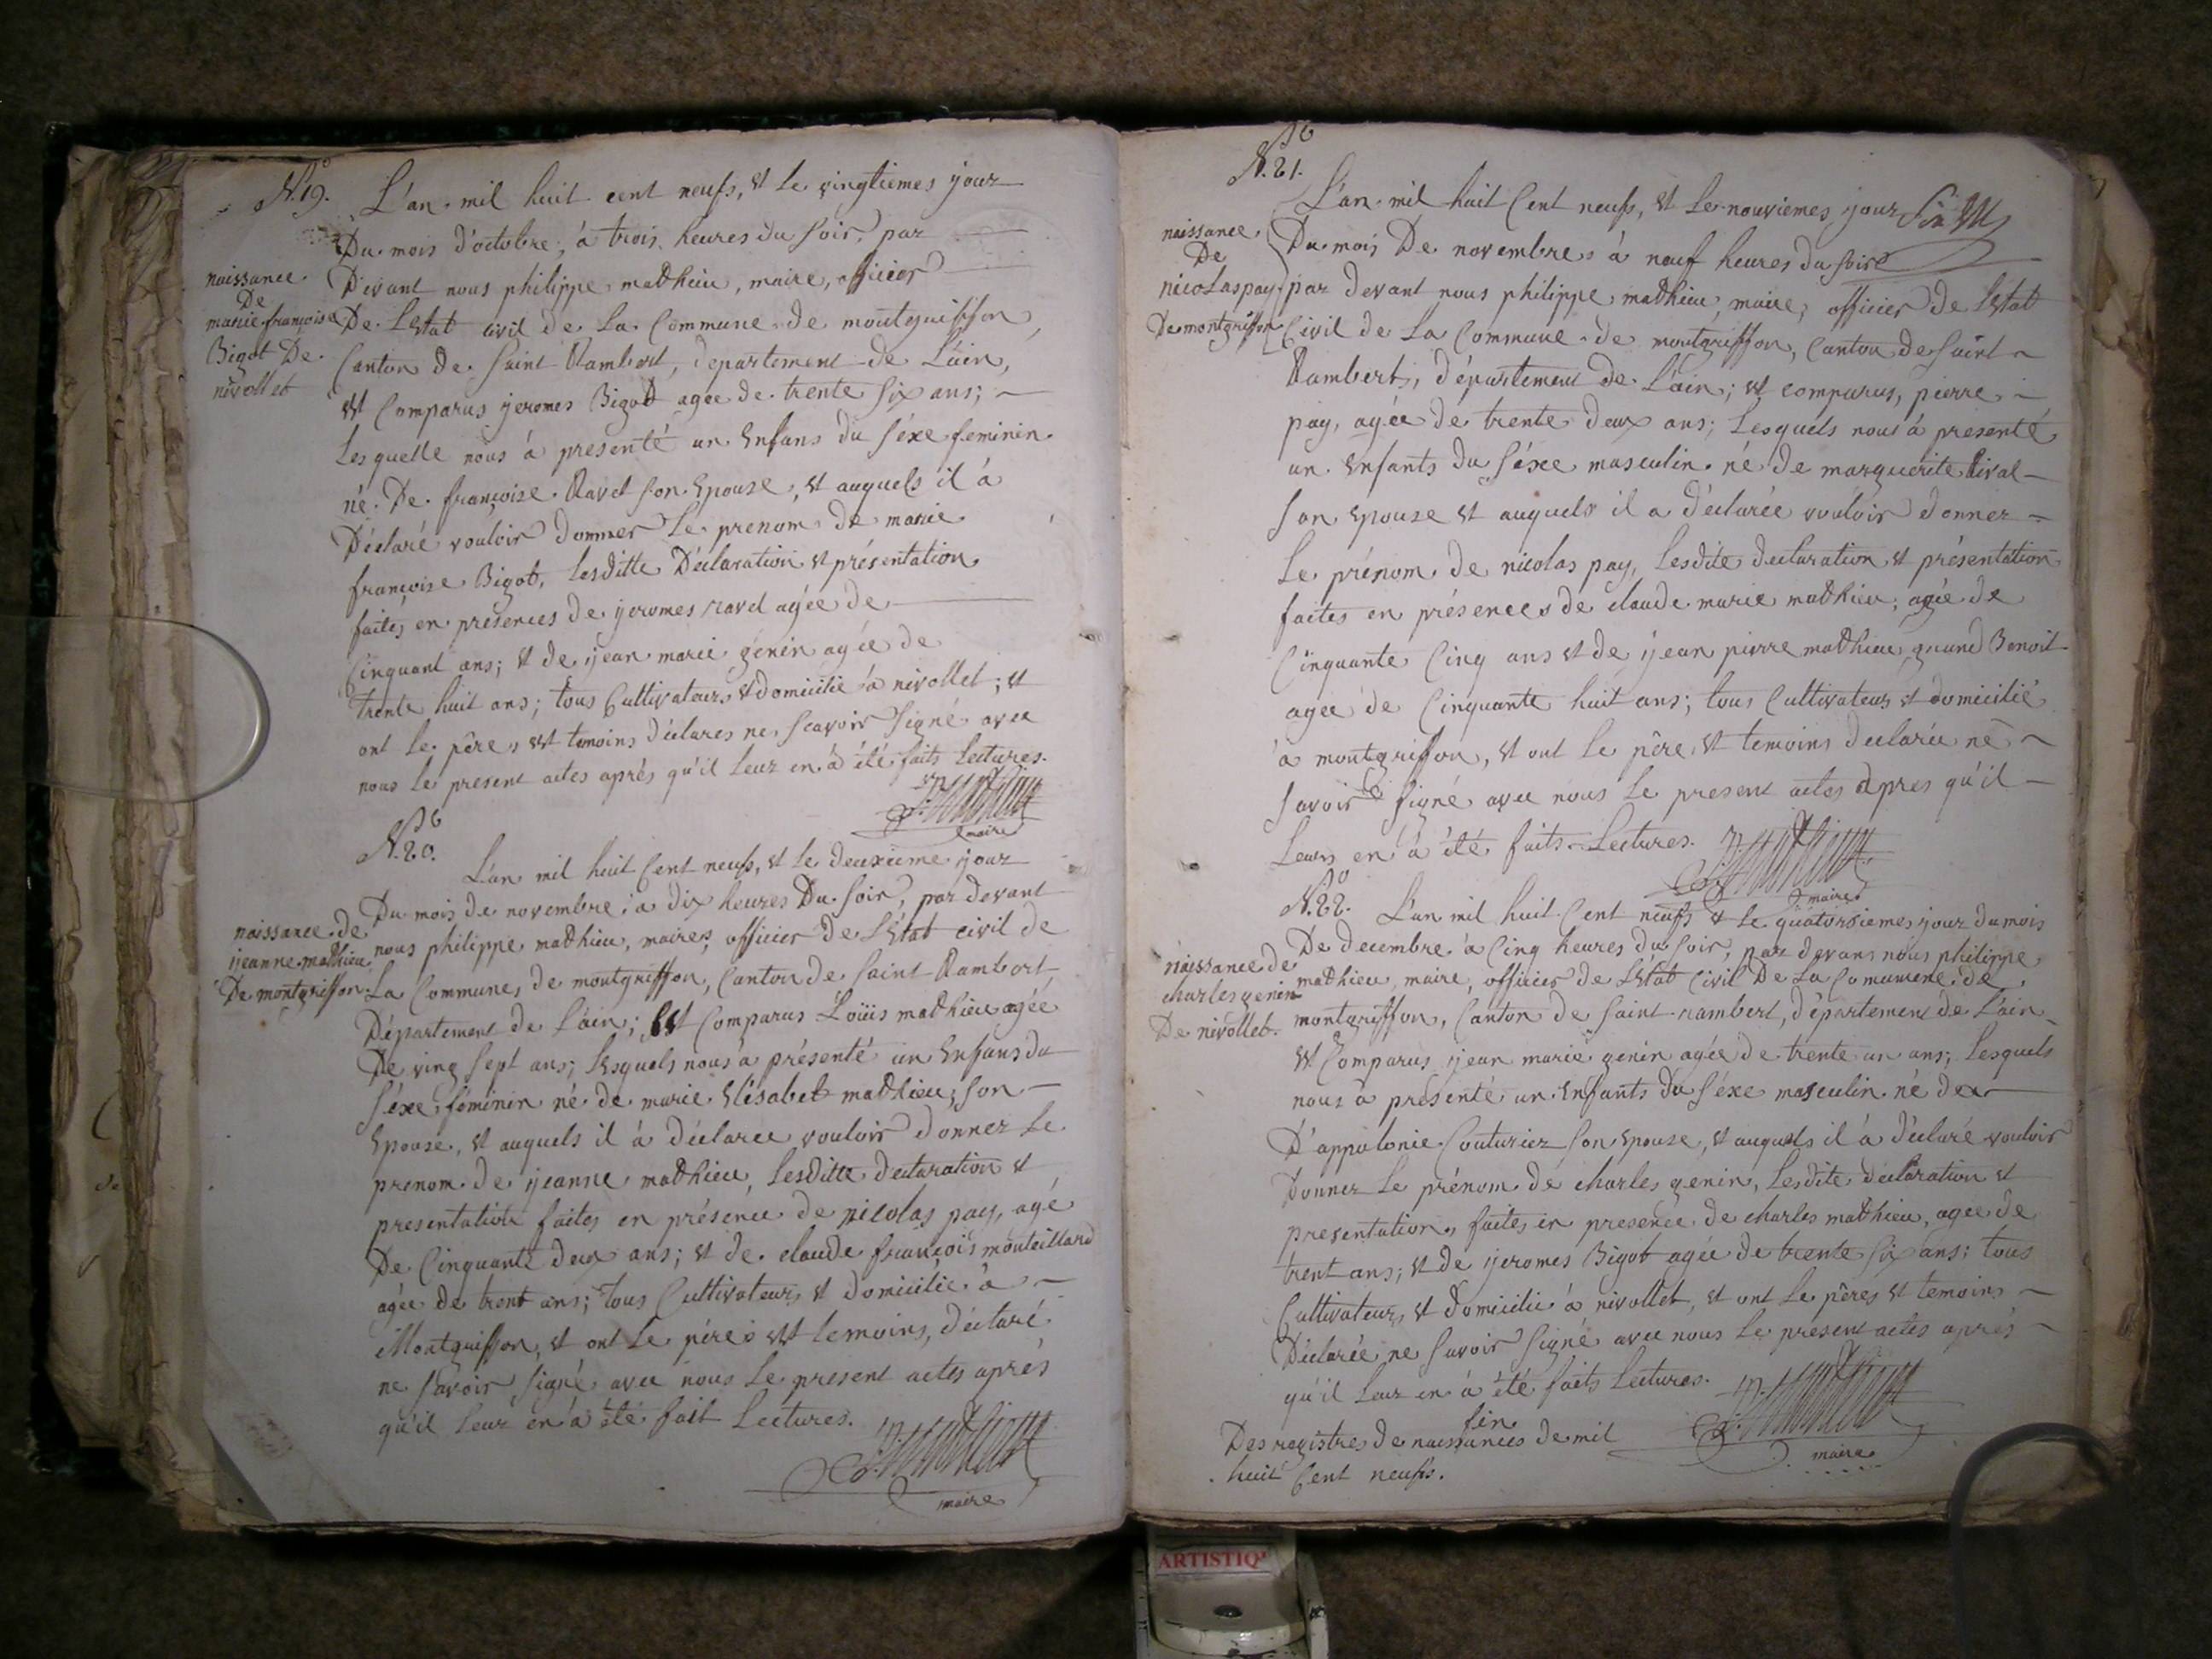 N.º 19.
L'an mil huit cent neufs, et le vingtiemes jour
Du mois d'octobre, à trois heures du soir, par
naissance
De
marie françoise
Bigot De
nivollet
Devant nous philippe mathieu, maire, officier
De L'Etat civil de La Commune de montgriffon,
Canton de Saint Rambert, departement de L'ain,
Est Comparus jeromes Bigot agée de trente six ans;
Lesquelle nous à presenté un Enfans du séxe feminin
né De françoise Ravet son Epouse, et auquels il à
Déclaré vouloir donner Le prenom de marie
françoise Bigot, Lesditte Déclaration et présentation
faites en présences de jeromes ravet agée de
Cinquant ans; et de jean marie génin agée de
trente huit ans; tous Cultivateurs et domicilié à nivollet; et
ont Le pêres et temoins déclares ne scavoir signé avec
nous Le present actes aprés qu'il Leur en à été faits Lectures.
P. Mathieu
maire
N.º 20.
L'an mil huit Cent neufs, et Le deuxieme jour
Du mois de novembre à dix heures Du soir, par devant
naissance de
jeanne mathieu
De montgriffon
nous philippe mathieu, maires, officier de L'Etat civil de
La Communes de montgriffon, Canton de Saint Rambert,
Département de L'ain; Est Comparus Loüis mathieu agée
De ving sept ans; Lesquels nous à présenté un Enfans du
séxe féminin né de marie Elisabet mathieu, son
Epouse, et auquels il à déclarée vouloir donner Le
prenom de jeanne mathieu, Lesditte declaration et
presentation faites en présence de nicolas pay, agé
De Cinquante deux ans; et de claude françois monteillard
agée de trent ans; tous Cultivateurs et domicilie à
Montgriffon, et ont Le pères et temoins, déclaré
ne savoir signé avec nous Le present actes aprés
qu'il Leur en à été fait Lectures.
P. Mathieu
maire
N.º 21.
L'an mil huit Cent neufs, et Le nouviemes jour
naissance
De
nicolas pay
De montgriffon
Du mois De novembres à neuf heures du soire
par devant nous philippe mathieu, maire, officier de L'Etat
Civil de La Commune de montgriffon, Canton de saint
Rambert, département de L'ain; et comparus, pierre
pay, agée de trente deux ans; Lesquels nous à presenté
un Enfants du séxe masculin né de marguerite Rival
son Epouse et auquels il a déclarée vouloir donner
Le prénom de nicolas pay, Lesdite declaration et présentation
faites en présences de claude marie mathieu, agée de
Cinquante Cinq ans et de jean pierre mathieu grand Benoit
agée de Cinquante huit ans; tous Cultivateurs et domicilié
à montgriffon, et ont Le pêre et temoins declarée ne
savoir signé avec nous Le present actes apres qu'il
Leurs en à été faits Lectures.
P. Mathieu
maire
N.º 22.
L'an mil huit Cent neufs et Le quatorsiemes jour du mois
De decembre à Cinq heures du soir, par devans nous philippe
naissance de
charles genin
De nivollet.
mathieu, maire, officier de L'Etat Civil De La Comumene de
montgriffon, Canton de Saint rambert, département de L'ain
et Comparus jean marie genin agée de trente un ans; Lesquels
nous à présenté un Enfants du séxe masculin né de
D'appolonie Couturier son Epouse, et auquels il à déclaré vouloir
Donner Le prénom de charles genin, Lesdite déclaration et
presentation, faites in presence de charles mathieu, agee de
trent ans; et de jeromes Bigot agée de trente six ans; tous
Cultivateurs et domicilie à nivollet, et ont Le pêres et temoins
Déclarée ne savoir signé avec nous Le présent actes aprés
qu'il Leur en à été faits Lectures.
P. Mathieu
maire
fin
Des registres de naissances de mil
huit Cent neufs.
ARTISTIQ